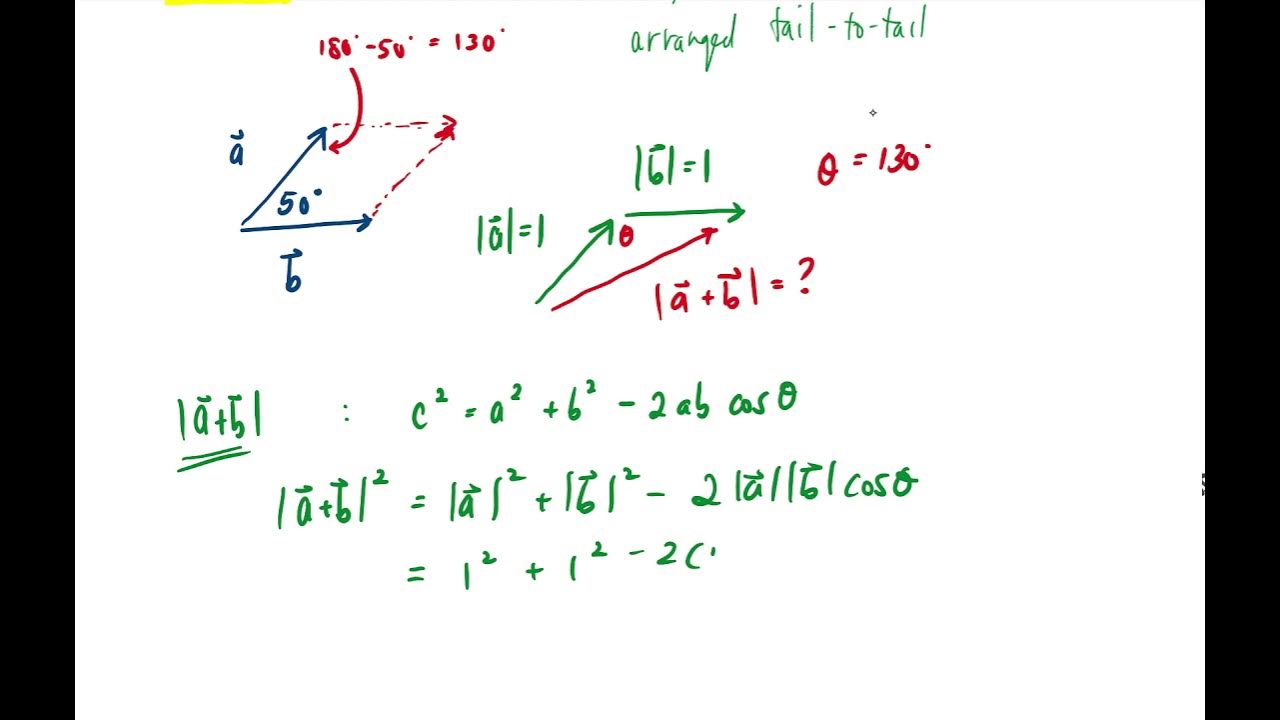 arranged tail-to-tail
180° - 50° = 130°
a⃗
50°
b⃗
|b⃗| = 1
θ = 130°
|a⃗| = 1
θ
|a⃗ + b⃗| = ?
|a⃗+b⃗| : c² = a² + b² - 2ab cosθ
|a⃗+b⃗|² = |a⃗|² + |b⃗|² - 2|a⃗||b⃗| cosθ
= 1² + 1² - 2(